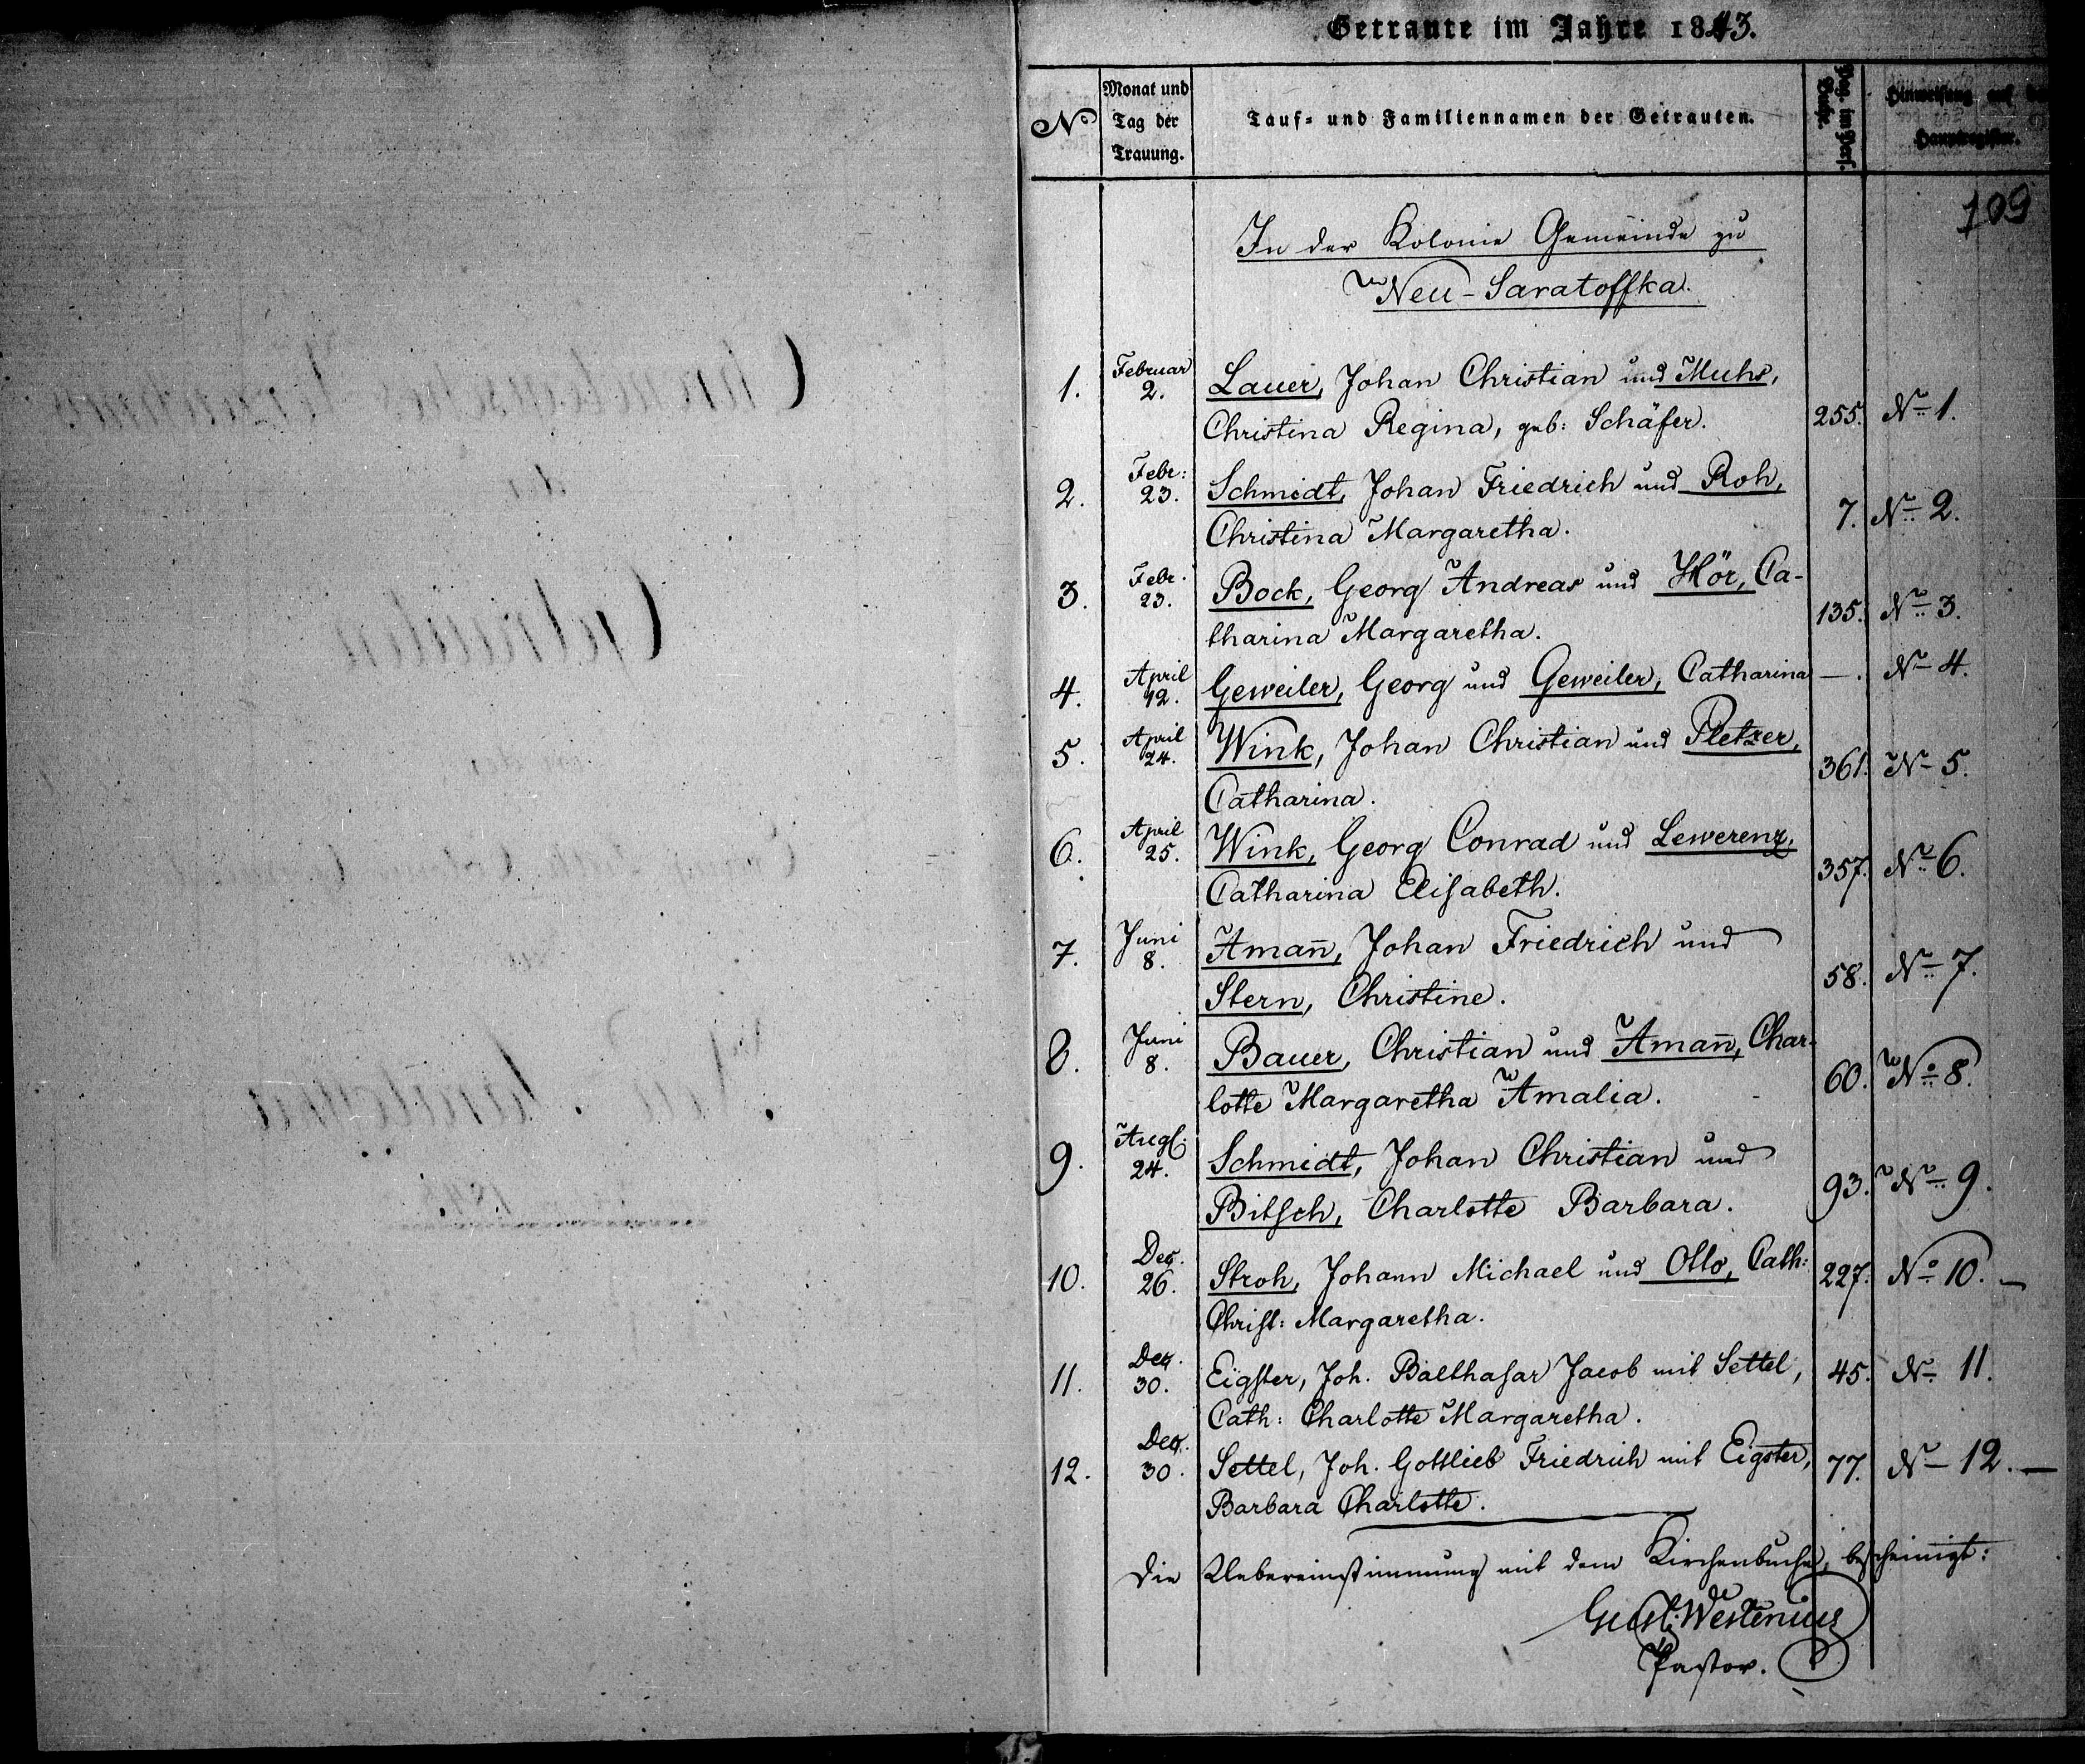 Getraute im Jahre 1843.
No
Monat und
Tag der
Trauung.
Tauf- und Familiennamen der Getrauten.
Pag. im Pers.
Buche.
Hinweisung auf das
Hauptregister.
109
In der Kolonie Gemeinde zu
Neu-Saratoffka.
1. Februar 2. Lauer, Johan Christian und Muhs,
Christina Regina, geb: Schäfer. 255. No 1.
2. Febr: 23. Schmidt, Johan Friedrich und Roh,
Christina Margaretha. 7. No 2.
3. Febr. 23. Bock, Georg Andreas und Hör, Ca-
tharina Margaretha. 135. No 3.
4. April 12. Geweiler, Georg und Geweiler, Catharina —. No 4.
5. April 24. Wink, Johan Christian und Pletzer,
Catharina. 361. No 5.
6. April 25. Wink, Georg Conrad und Lewerenz,
Catharina Elisabeth. 357. No 6.
7. Juni 8. Aman̄, Johan Friedrich und
Stern, Christine. 58. No 7.
8. Juni 8. Bauer, Christian und Aman̄, Char-
lotte Margaretha Amalia. 60. No 8.
9. Aug. 24. Schmidt, Johan Christian und
Bitsch, Charlotte Barbara. 93. No 9.
10. Dec. 26. Stroh, Johann Michael und Otto, Cath: 227. No 10. —
Christ: Margaretha.
11. Dec. 30. Eigster, Joh. Balthasar Jacob mit Settel, 45. No 11.
Cath: Charlotte Margaretha.
12. Dec. 30. Settel, Joh. Gottlieb Friedrich mit Eigster, 77. No 12. —
Barbara Charlotte.
Die Uebereinstimmung mit dem Kirchenbuche, bescheinigt:
Gust: Westenius
Pastor.